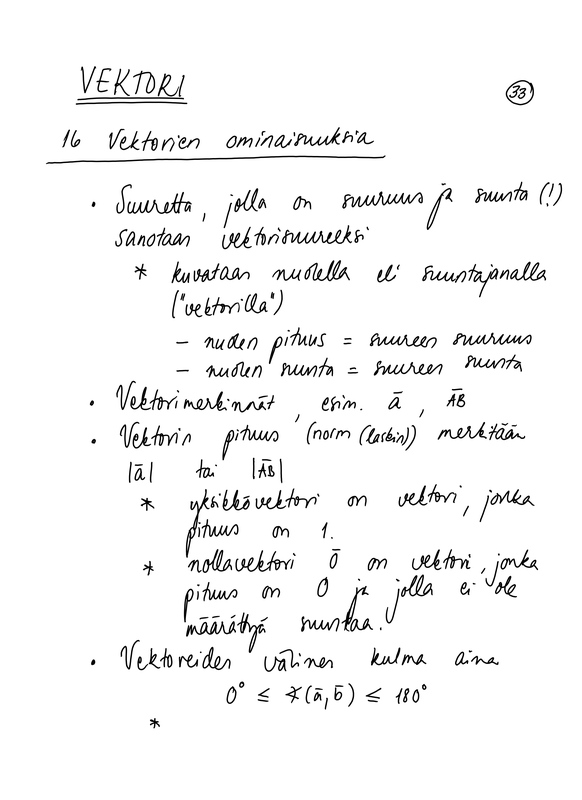 VEKTORI
33
16 Vektorien ominaisuuksia
• Suuretta, jolla on suuruus ja suunta (!)
sanotaan vektorisuureeksi
* kuvataan nuolella eli suuntajanalla
("vektorilla")
– nuolen pituus = suureen suuruus
– nuolen suunta = suureen suunta
• Vektorimerkinnät, esim. a̅, A̅B̅
• Vektorin pituus (norm (laskin)) merkitään
|a̅| tai |A̅B̅|
* yksikkövektori on vektori, jonka
pituus on 1.
* nollavektori 0̅ on vektori, jonka
pituus on 0 ja jolla ei ole
määrättyä suuntaa.
• Vektoreiden välinen kulma aina
0° ≤ ∢(a̅, b̅) ≤ 180°
*